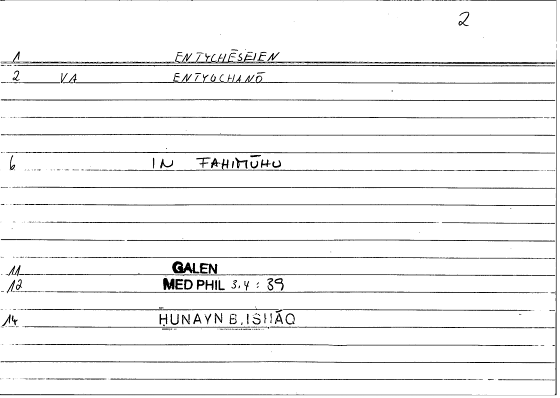 2
1 ENTYCHĒSEIEN
2 VA ENTYGCHANŌ
6 IN FAHIMŪHU
11 GALEN
12 MED PHIL 3.4 : 39
14 ḤUNAYN B. ISḤĀQ